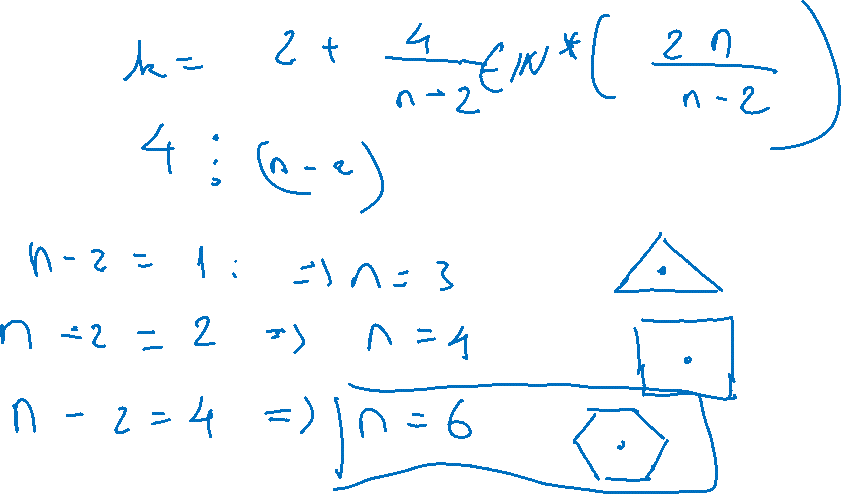 k = 2 + 4/(n-2) ∈ IN* ( 2n/(n-2) )
4 ⋮ (n-2)
n-2 = 1 : => n = 3
n-2 = 2 => n = 4
n-2 = 4 => n = 6